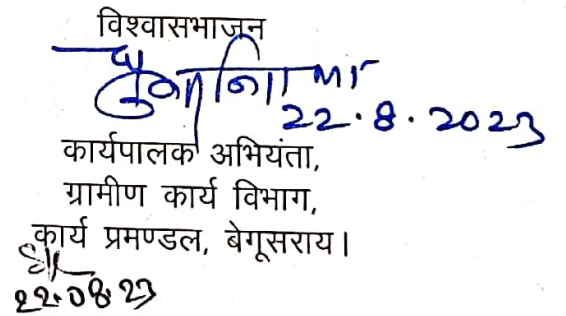 विश्वासभाजन
22.8.2023
कार्यपालक अभियंता,
ग्रामीण कार्य विभाग,
कार्य प्रमण्डल, बेगूसराय।
22.08.23